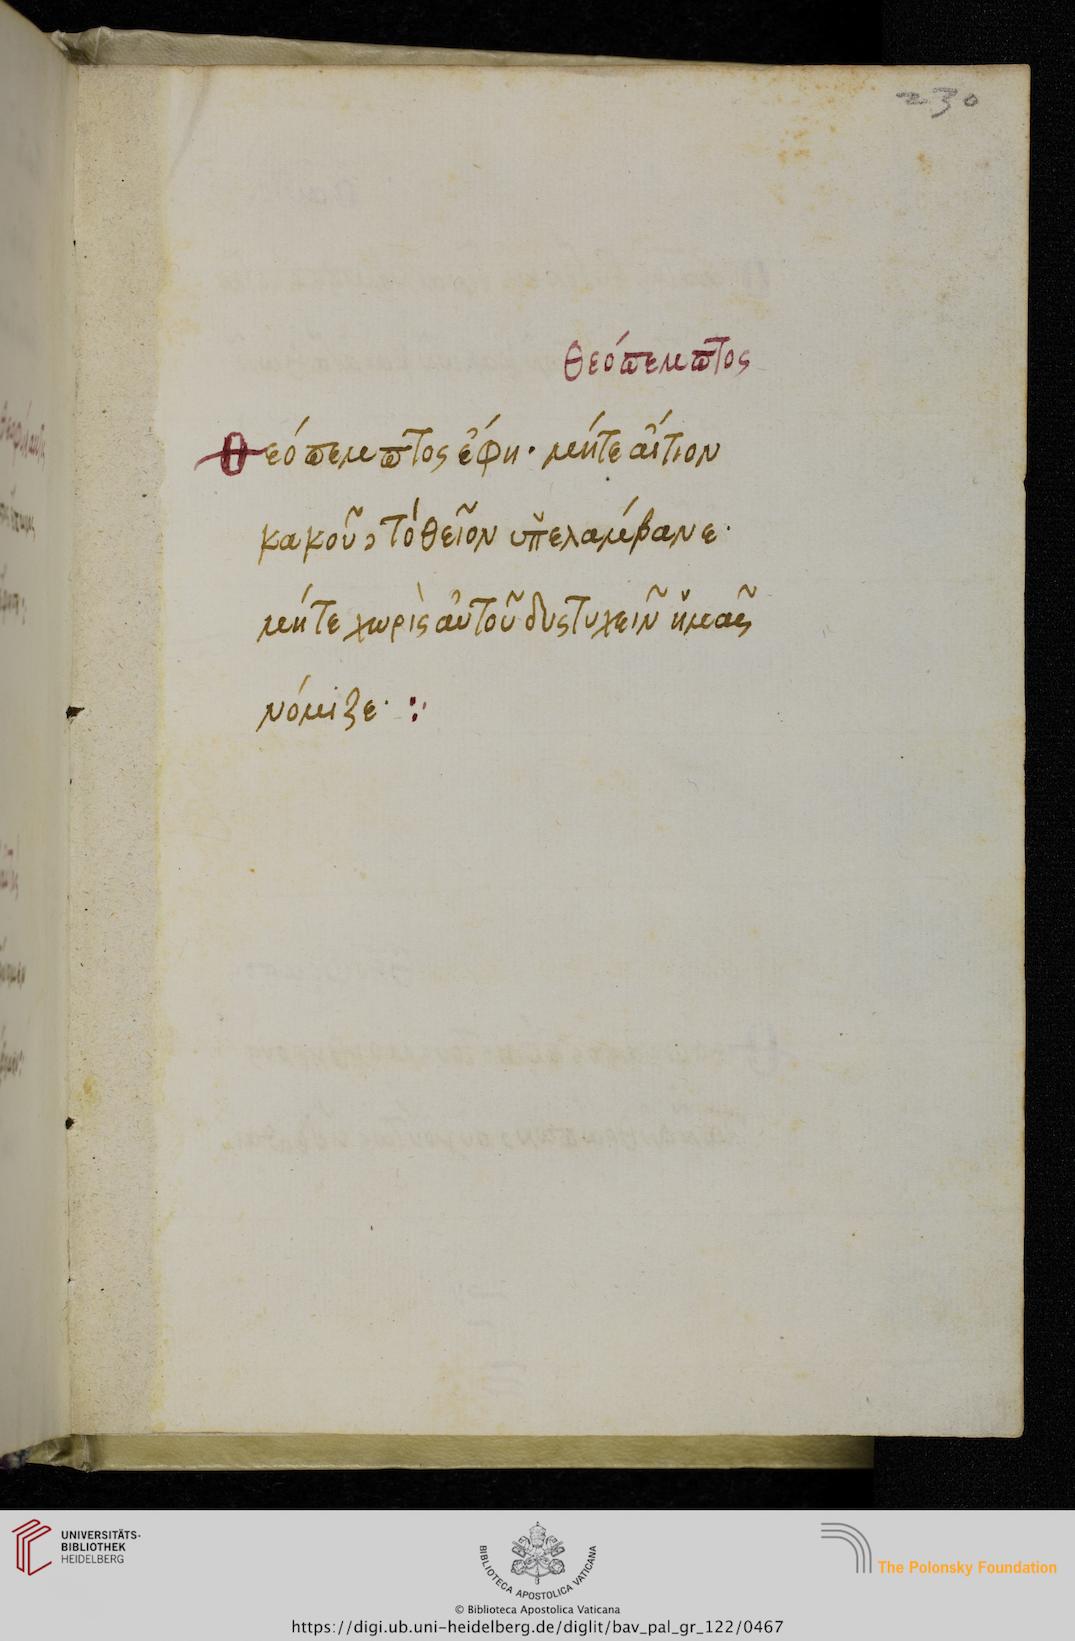 230
θεόπεμπτος
Θεόπεμπτος ἔφη· μήτε αἴτιον
κακοῦς τὸ θεῖον ὑπελαμβανε·
μήτε χωρὶς αὐτοῦ δυςτυχεῖν ἡμᾶς
νόμιζε· :·
UNIVERSITÄTS-
BIBLIOTHEK
HEIDELBERG
BIBLIOTECA APOSTOLICA VATICANA
The Polonsky Foundation
© Biblioteca Apostolica Vaticana
https://digi.ub.uni-heidelberg.de/diglit/bav_pal_gr_122/0467